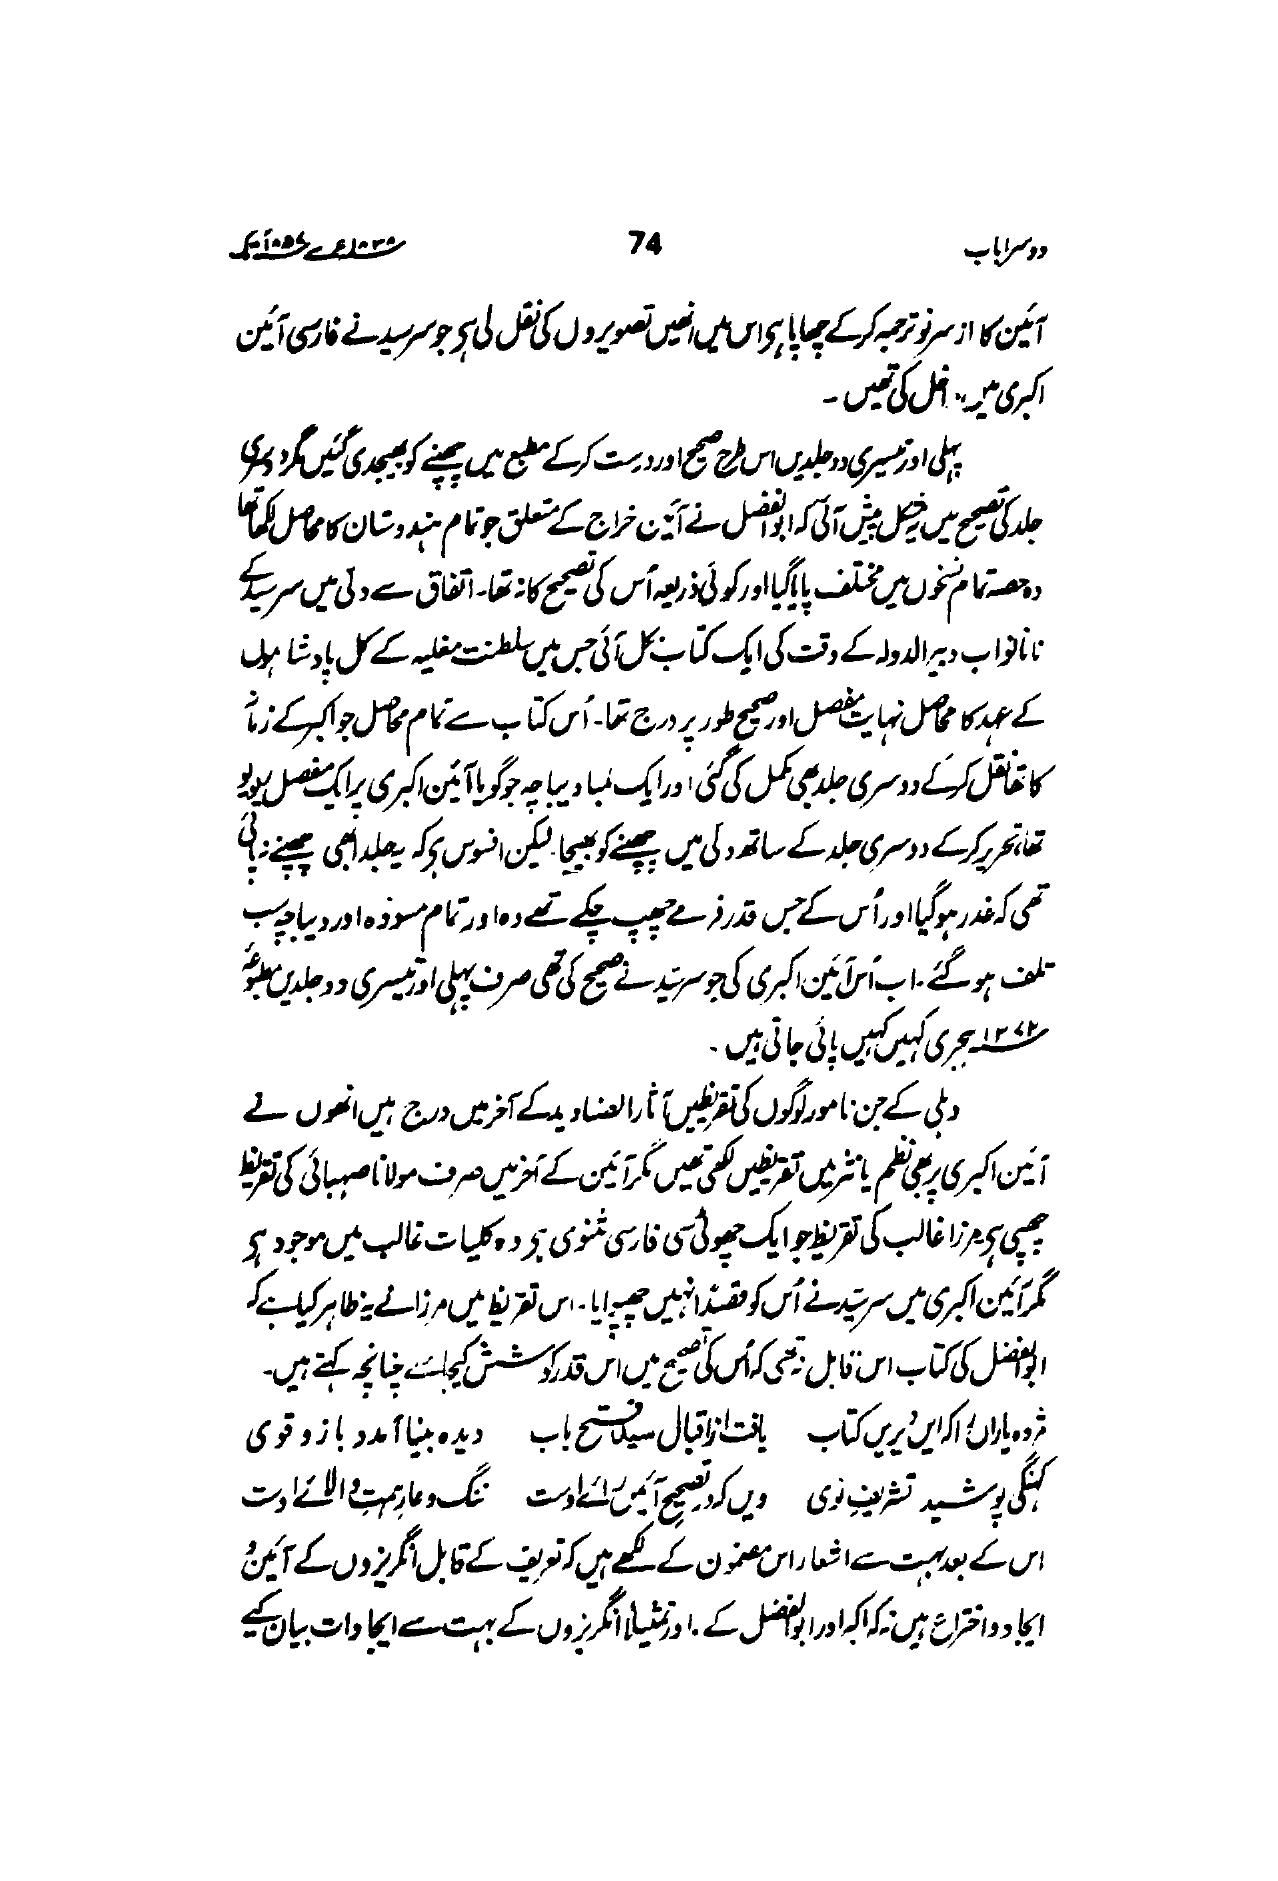 دوسرا باب 74 ۱۸۳۸ء سے ۱۸۵۷ء تک
آئین کا از سر نو ترجمہ کرکے چھاپا ہی اس میں انھیں تصویروں کی نقل لی ہی جو سرسید نے فارسی آئین
اکبری میں داخل کی تھیں ۔
پہلی اور تیسری دو جلدیں اس طرح صحیح اور درست کرکے مطبع میں چھپنے کو بھیجدی گئیں مگر دوسری
جلد کی تصحیح میں یہ مشکل پیش آئی کہ ابوالفضل نے آئین خراج کے متعلق جو تمام ہندوستان کا محاصل لکھا تھا
وہ حصہ تمام نسخوں میں مختلف پایا گیا اور کوئی ذریعہ اُس کی تصحیح کا نہ تھا۔ اتفاق سے دلی میں سرسید کے
نانا نواب دبیر الدولہ کے وقت کی ایک کتاب نکل آئی جس میں سلطنت مغلیہ کے کل پادشاہوں
کے عہد کا محاصل نہایت مفصل اور صحیح طور پر درج تھا۔ اُس کتاب سے تمام محاصل جو اکبر کے زمانے
کا تھا نقل کرکے دوسری جلد بھی مکمل کی گئی اور ایک لمبا دیباچہ جو گویا آئین اکبری پر ایک مفصل ریویو
تھا، تحریر کرکے دوسری جلد کے ساتھ دلی میں چھپنے کو بھیجا۔ لیکن افسوس ہی کہ یہ جلد ابھی چھپنے نہ پائی
تھی کہ غدر ہو گیا اور اُس کے جس قدر فرمے چھپ چکے تھے وہ اور تمام مسودہ اور دیباچہ سب
تلف ہو گئے ۔ اب اُس آئین اکبری کی جو سرسید نے صحیح کی تھی صرف پہلی اور تیسری دو جلدیں مطبوعہ
۱۲۷۲ ہجری کہیں کہیں پائی جاتی ہیں ۔
دہلی کے جن نامور لوگوں کی تقریظیں آثار الصنادید کے آخر میں درج ہیں انھوں نے
آئین اکبری پر بھی نظم یا نثر میں تقریظیں لکھی تھیں مگر آئین کے آخر میں صرف مولانا صہبائی کی تقریظ
چھپی ہی مرزا غالب کی تقریظ جو ایک چھوٹی سی فارسی مثنوی ہی وہ کلیات غالب میں موجود ہی
مگر آئین اکبری میں سرسید نے اُس کو قصداً نہیں چھپوایا۔ اس تقریظ میں مرزا نے یہ ظاہر کیا ہے کہ
ابوالفضل کی کتاب اس قابل نہ تھی کہ اُس کی تصحیح میں اس قدر کوشش کیجائے چنانچہ کہتے ہیں۔
مژدہ یاراں را کہ ایں دیریں کتاب یافت از اقبال سید فتح باب دیدہ بینا آمد و بازو قوی
کہنگی پوشید تشریف نوی ویں کہ در تصحیح آئیں رائے اوست ننگ و عار ہمت والائے اوست
اس کے بعد بہت سے اشعار اس مضمون کے لکھے ہیں کہ تعریف کے قابل انگریزوں کے آئین و
ایجاد و اختراع ہیں نہ کہ اکبر اور ابوالفضل کے ۔ اور تمثیلاً انگریزوں کے بہت سے ایجادات بیان کیے